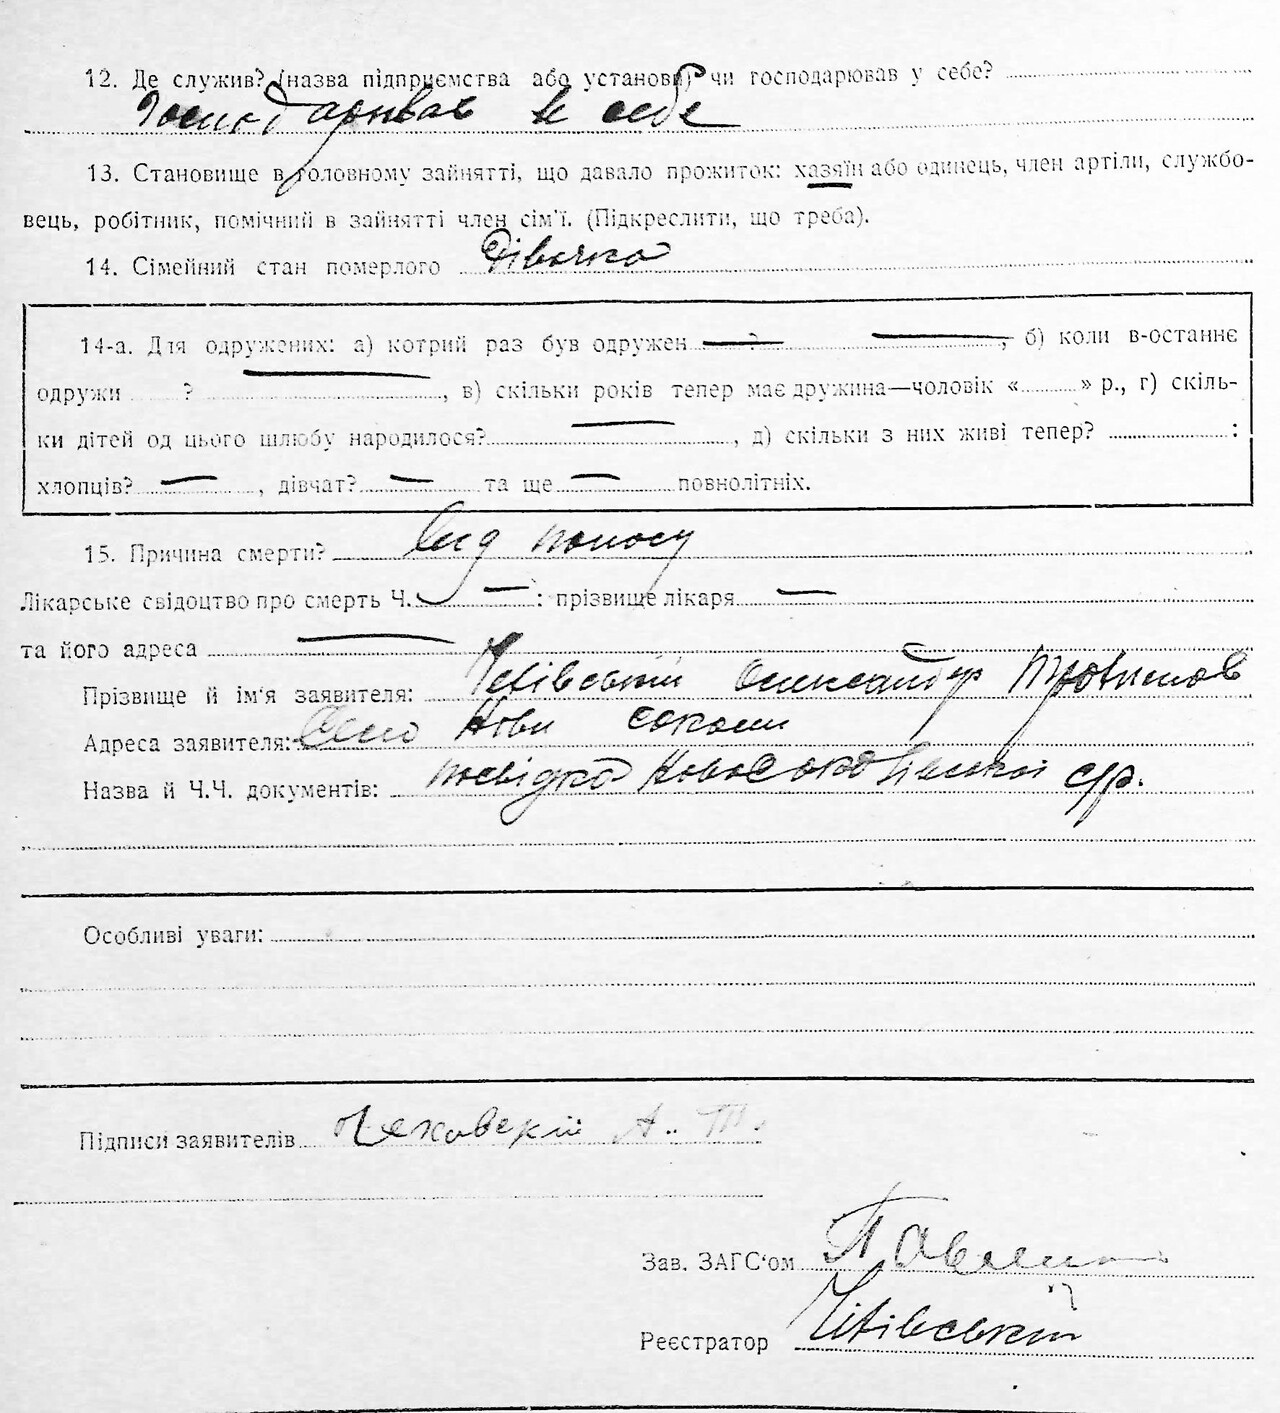 12. Де служив? (назва підприємства або установи) чи господарював у себе?
Господарював в себе
13. Становище в головному зайнятті, що давало прожиток: хазяїн або одинець, член артіли, службо-
вець, робітник, помічний в зайнятті член сім'ї. (Підкреслити, що треба).
14. Сімейний стан померлого Дівочка
14-а. Для одружених: а) котрий раз був одружен — ? —, б) коли в-останнє
одружи ? —, в) скільки років тепер має дружина—чоловік « » р., г) скіль-
ки дітей од цього шлюбу народилося? —, д) скільки з них живі тепер? :
хлопців? —, дівчат? — та ще — повнолітніх.
15. Причина смерти? Від поносу
Лікарське свідоцтво про смерть Ч. — : прізвище лікаря —
та його адреса —
Прізвище й ім'я заявителя: Олександр
Адреса заявителя: Село Нови Соколи
Назва й Ч.Ч. документів: посвідка Новосоколівської с/р.
Особливі уваги:
Підписи заявителів А. Т.
Зав. ЗАГС'ом
Реєстратор